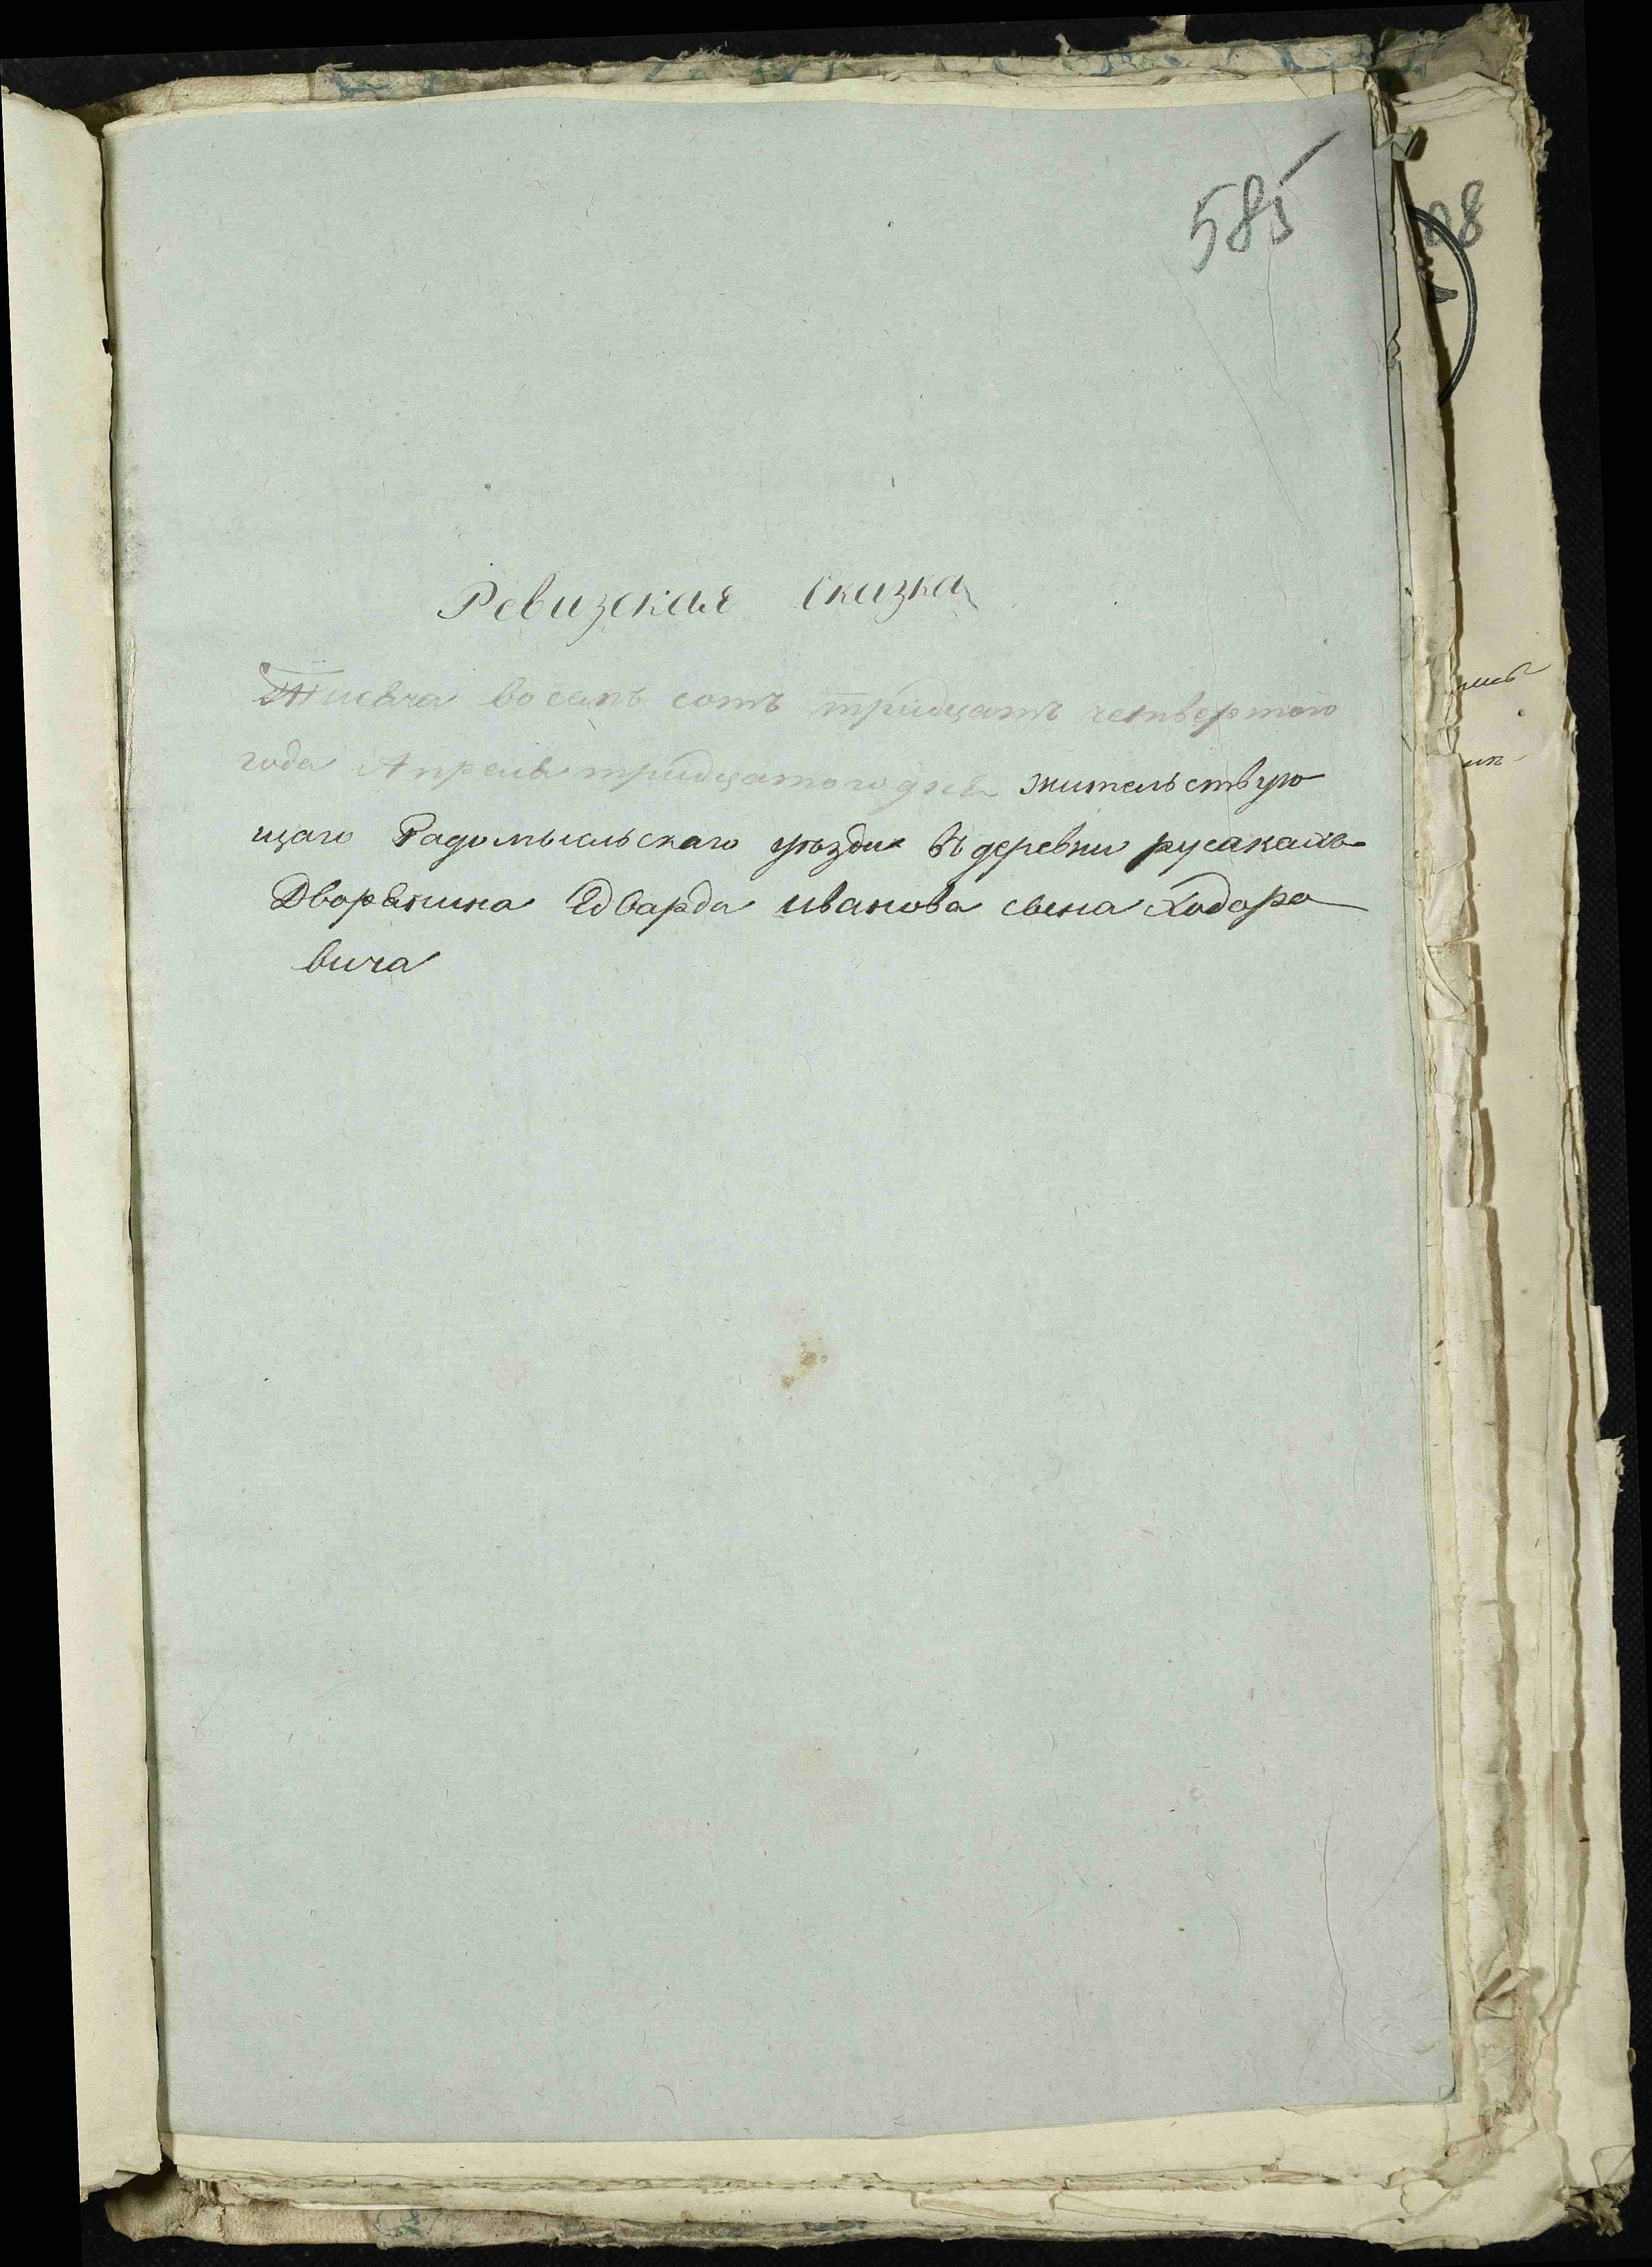 585
Ревизская Сказка
Тисяча восемь сотъ тридцать четвертого
года Апреля тридцатого дня жительствую
щаго Радомысльскаго уезда въ деревни русакахъ
Дворянина Едварда иванова сына Ходоро
вича